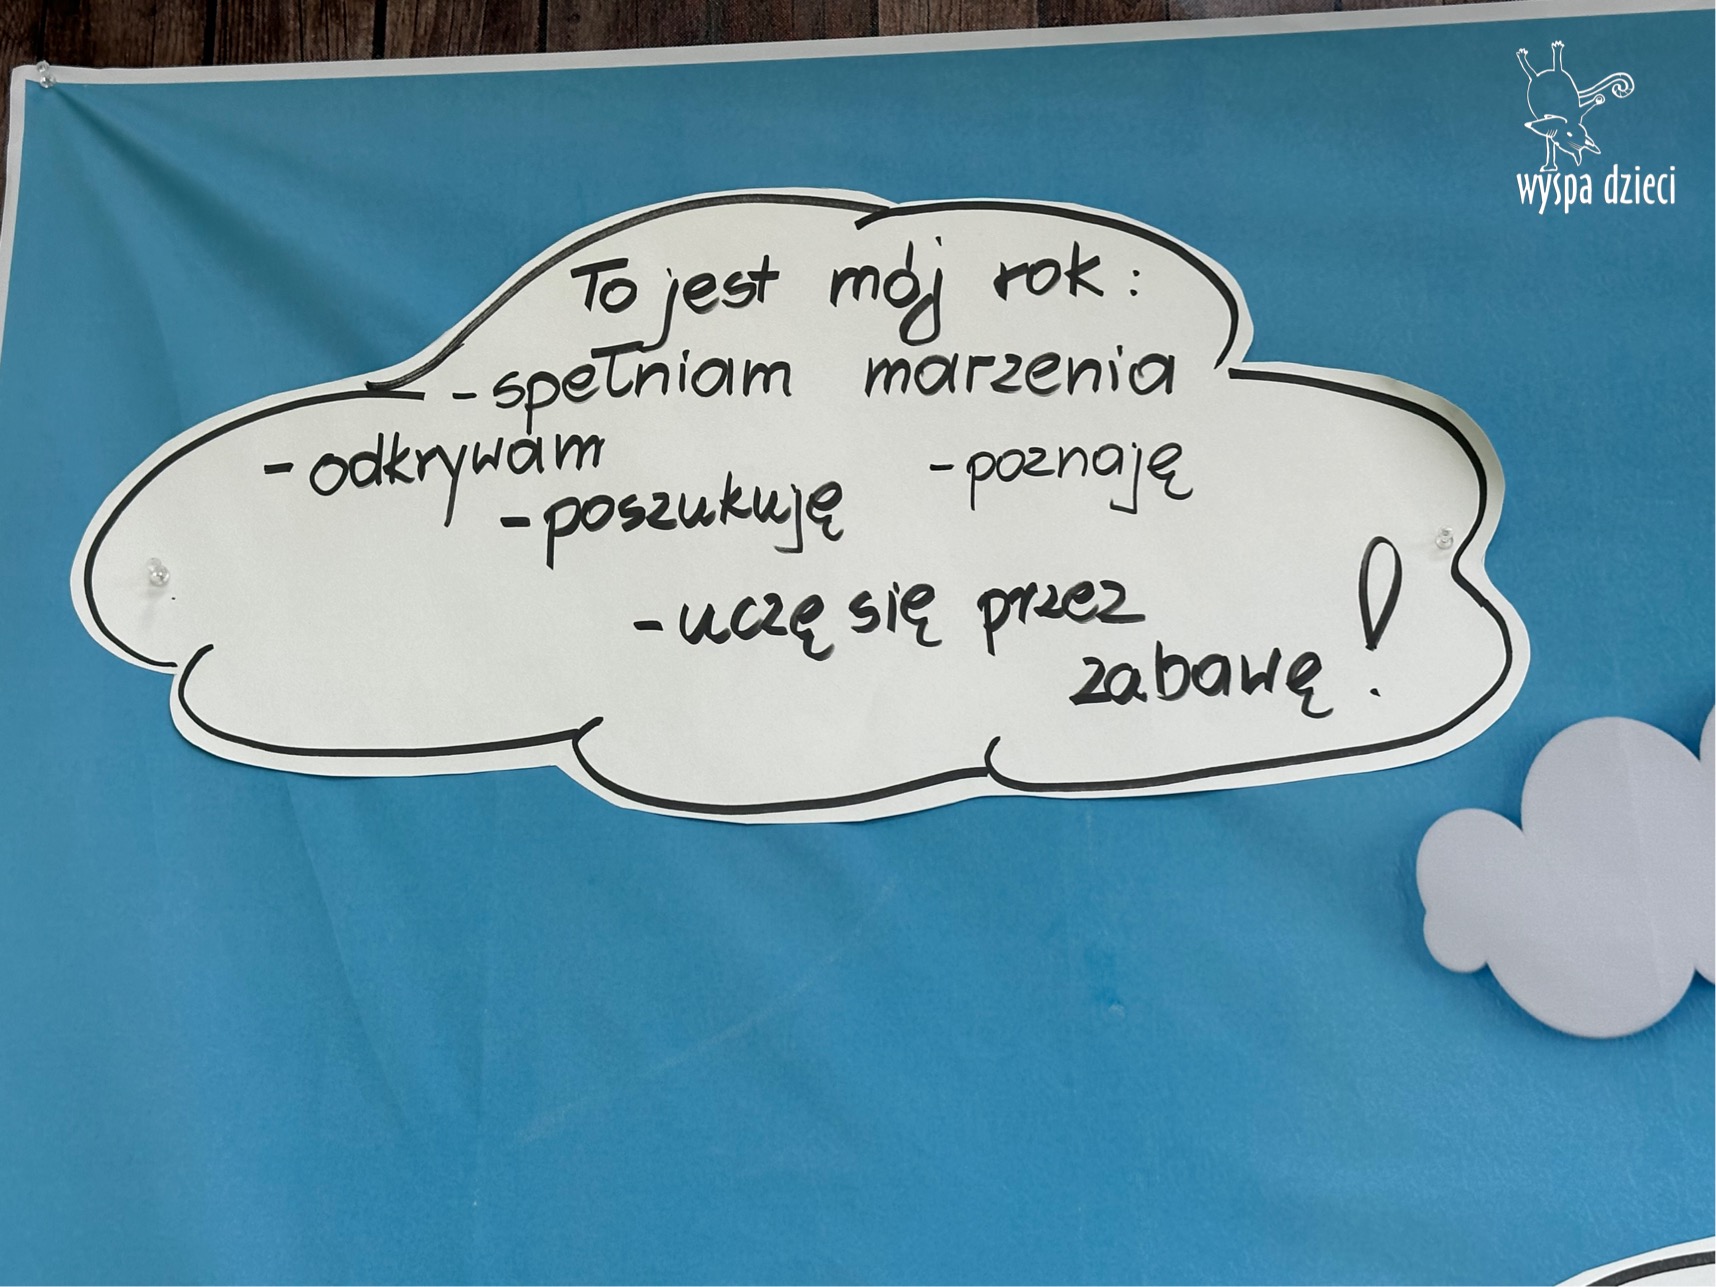 wyspa dzieci
To jest mój rok:
- spełniam marzenia
- odkrywam
- poznaję
- poszukuję
- uczę się przez
zabawę!